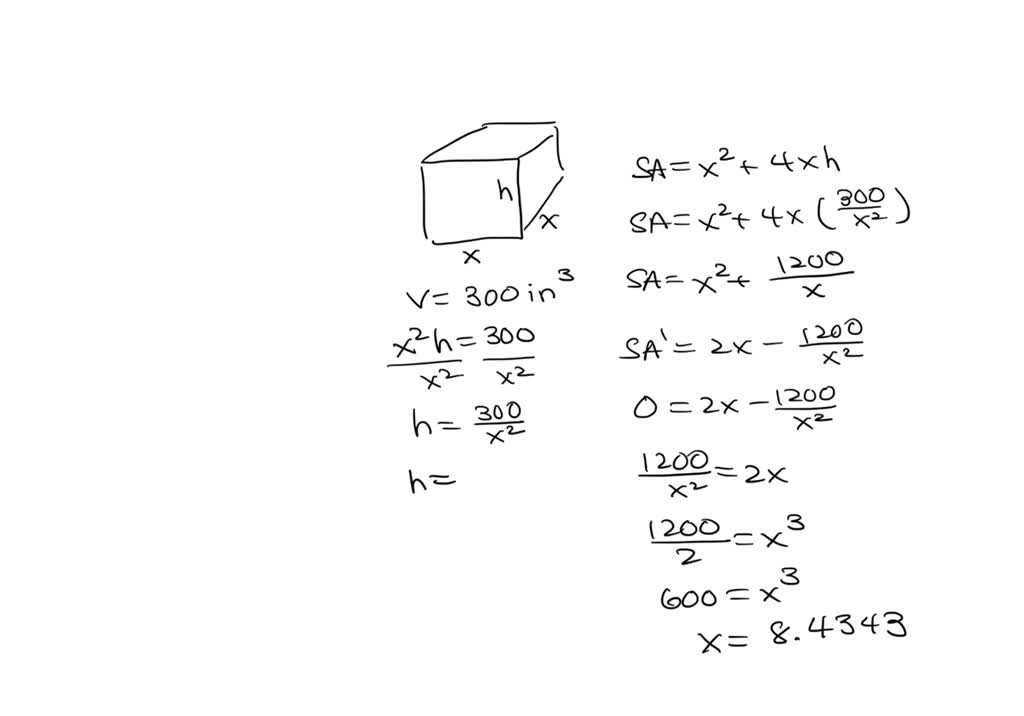 h
x
x
V = 300 in³
x²h = 300
x² x²
h = 300/x²
h =
SA = x² + 4xh
SA = x² + 4x (300/x²)
SA = x² + 1200/x
SA' = 2x - 1200/x²
0 = 2x - 1200/x²
1200/x² = 2x
1200/2 = x³
600 = x³
x = 8.4343